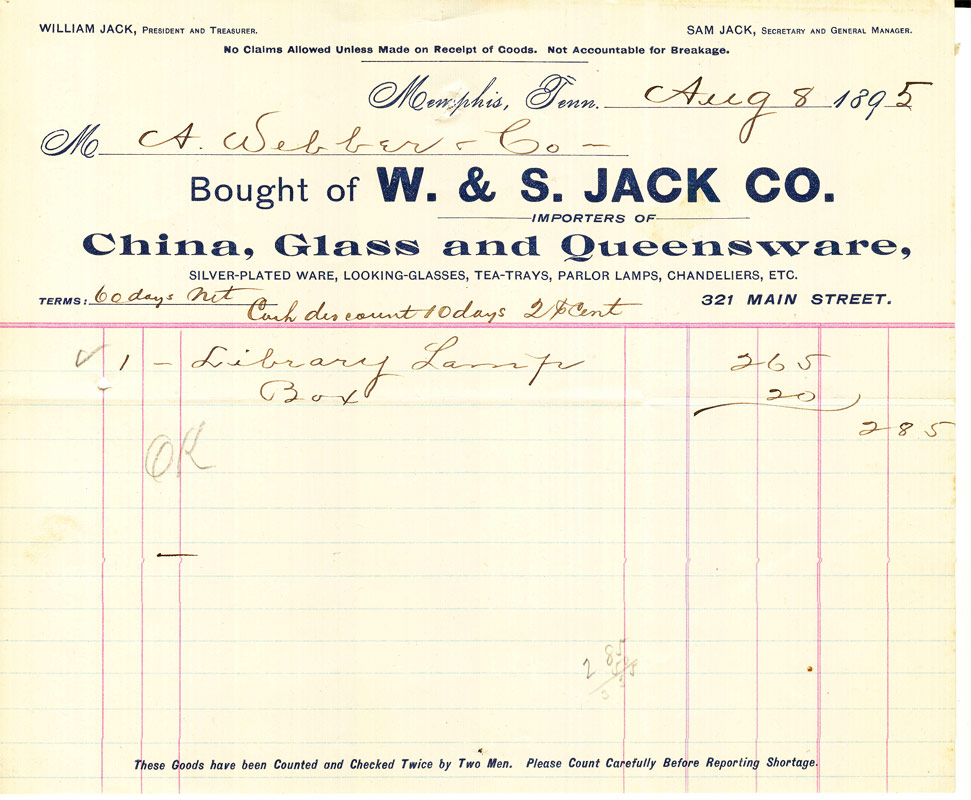 WILLIAM JACK, PRESIDENT AND TREASURER. SAM JACK, SECRETARY AND GENERAL MANAGER.
No Claims Allowed Unless Made on Receipt of Goods. Not Accountable for Breakage.
Memphis, Tenn. Aug 8 1895
M A. Webber & Co —
Bought of W. & S. JACK CO.
IMPORTERS OF
China, Glass and Queensware,
SILVER-PLATED WARE, LOOKING-GLASSES, TEA-TRAYS, PARLOR LAMPS, CHANDELIERS, ETC.
TERMS: 60 days Net 321 MAIN STREET.
Cash discount 10 days 2 ⅌ Cent
✓ 1 — Library Lamp 2 65
Box 20
2 85
OK
2 85
These Goods have been Counted and Checked Twice by Two Men. Please Count Carefully Before Reporting Shortage.